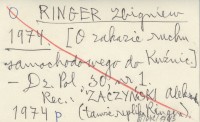 O RINGER Zbigniew
1974. [O zakazie ruchu
samochodowego do Kuźnic]
– Dz. Pol. 30, nr 1.
Rec.: ZACZYŃSKI Aleks
1974 p (Tamże replika Ringera.